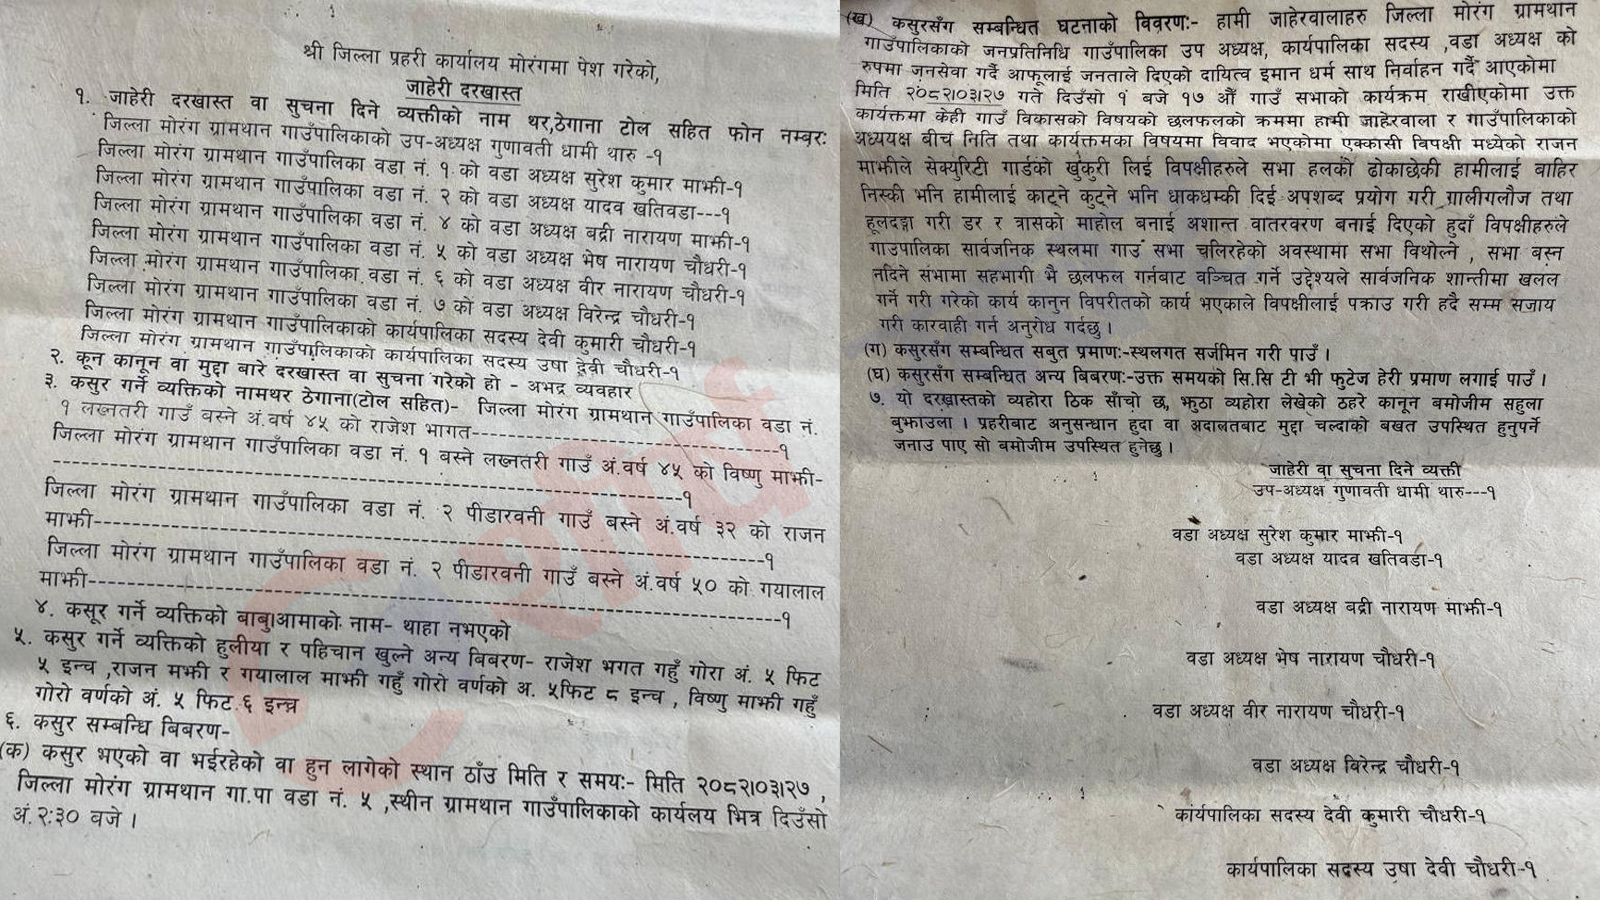 श्री जिल्ला प्रहरी कार्यालय मोरंगमा पेश गरेको,
जाहेरी दरखास्त
१. जाहेरी दरखास्त वा सुचना दिने व्यक्तीको नाम थर,ठेगाना टोल सहित फोन नम्बरः
जिल्ला मोरंग ग्रामथान गाउँपालिकाको उप-अध्यक्ष गुणावती धामी थारु -१
जिल्ला मोरंग ग्रामथान गाउँपालिका वडा नं. १ को वडा अध्यक्ष सुरेश कुमार माझी-१
जिल्ला मोरंग ग्रामथान गाउँपालिका वडा नं. २ को वडा अध्यक्ष यादव खतिवडा---१
जिल्ला मोरंग ग्रामथान गाउँपालिका वडा नं. ४ को वडा अध्यक्ष बद्री नारायण माझी-१
जिल्ला मोरंग ग्रामथान गाउँपालिका वडा नं. ५ को वडा अध्यक्ष भेष नारायण चौधरी-१
जिल्ला मोरंग ग्रामथान गाउँपालिका वडा नं. ६ को वडा अध्यक्ष वीर नारायण चौधरी-१
जिल्ला मोरंग ग्रामथान गाउँपालिका वडा नं. ७ को वडा अध्यक्ष विरेन्द्र चौधरी-१
जिल्ला मोरंग ग्रामथान गाउँपालिकाको कार्यपालिका सदस्य देवी कुमारी चौधरी-१
जिल्ला मोरंग ग्रामथान गाउँपालिकाको कार्यपालिका सदस्य उषा देवी चौधरी-१
२. कून कानून वा मुद्दा बारे दरखास्त वा सुचना गरेको हो - अभद्र व्यवहार
३. कसुर गर्ने व्यक्तिको नामथर ठेगाना(टोल सहित)- जिल्ला मोरंग ग्रामथान गाउँपालिका वडा नं.
१ लख्नतरी गाउँ बस्ने अं.वर्ष ४५ को राजेश भागत-----------------------------------१
जिल्ला मोरंग ग्रामथान गाउँपालिका वडा नं. १ बस्ने लख्नतरी गाउँ अं.वर्ष ४५ को विष्णु माझी-
-----------------------------------------------------------------------१
जिल्ला मोरंग ग्रामथान गाउँपालिका वडा नं. २ पीडारवनी गाउँ बस्ने अं.वर्ष ३२ को राजन
माझी---------------------------------------------------------------------------१
जिल्ला मोरंग ग्रामथान गाउँपालिका वडा नं. २ पीडारवनी गाउँ बस्ने अं.वर्ष ५० को गयालाल
माझी-----------------------------------------------------------------------------१
४. कसूर गर्ने व्यक्तिको बाबु।आमाको नाम- थाहा नभएको
५. कसुर गर्ने व्यक्तिको हुलीया र पहिचान खुल्ने अन्य बिबरण- राजेश भगत गहुँ गोरा अं. ५ फिट
५ इन्च ,राजन मझी र गयालाल माझी गहुँ गोरो वर्णको अ. ५फिट ८ इन्च , विष्णु माझी गहुँ
गोरो वर्णको अं. ५ फिट ६ इन्च
६. कसुर सम्बन्धि बिबरण-
(क) कसुर भएको वा भईरहेको वा हुन लागेको स्थान ठाँउ मिति र समयः- मिति २०८२।०३।२७ ,
जिल्ला मोरंग ग्रामथान गा.पा वडा नं. ५ ,स्थीन ग्रामथान गाउँपालिकाको कार्यलय भित्र दिउँसो
अं.२:३० बजे ।
(ख) कसुरसँग सम्बन्धित घटनाको विवरणः- हामी जाहेरवालाहरु जिल्ला मोरंग ग्रामथान
गाउँपालिकाको जनप्रतिनिधि गाउँपालिका उप अध्यक्ष, कार्यपालिका सदस्य ,वडा अध्यक्ष को
रुपमा जनसेवा गर्दै आफूलाई जनताले दिएको दायित्व इमान धर्म साथ निर्वाहन गर्दै आएकोमा
मिति २०८२।०३।२७ गते दिउँसो १ बजे १७ औं गाउँ सभाको कार्यक्रम राखीएकोमा उक्त
कार्यक्तमा केही गाउँ विकासको विषयको छलफलको क्रममा हामी जाहेरवाला र गाउँपालिकाको
अध्ययक्ष बीच निति तथा कार्यक्तमका विषयमा विवाद भएकोमा एक्कासी विपक्षी मध्येको राजन
माझीले सेक्युरिटी गार्डको खुकुरी लिई विपक्षीहरुले सभा हलको ढोकाछेकी हामीलाई बाहिर
निस्की भनि हामीलाई काट्ने कुट्ने भनि धाकधम्की दिई अपशब्द प्रयोग गरी ग्रालीगलौज तथा
हूलदङ्गा गरी डर र त्रासको माहोल बनाई अशान्त वातरवरण बनाई दिएको हुदाँ विपक्षीहरुले
गाउपालिका सार्वजनिक स्थलमा गाउँ सभा चलिरहेको अवस्थामा सभा विथोल्ने , सभा बस्न
नदिने संभामा सहभागी भै छलफल गर्नबाट वञ्चित गर्ने उद्देश्यले सार्वजनिक शान्तीमा खलल
गर्ने गरी गरेको कार्य कानुन विपरीतको कार्य भएकाले विपक्षीलाई पक्राउ गरी हदै सम्म सजाय
गरी कारवाही गर्न अनुरोध गर्दछु ।
(ग) कसुरसँग सम्बन्धित सबुत प्रमाणः-स्थलगत सर्जमिन गरी पाउँ ।
(घ) कसुरसँग सम्बन्धित अन्य बिबरणः-उक्त समयको सि.सि टी भी फुटेज हेरी प्रमाण लगाई पाउँ ।
७. यो दरखास्तको व्यहोरा ठिक साँचो छ, झुठा व्यहोरा लेखेको ठहरे कानून बमोजीम सहुला
बुझाउला । प्रहरीबाट अनुसन्धान हुदा वा अदालतबाट मुद्दा चल्दाको बखत उपस्थित हुनुपर्ने
जनाउ पाए सो बमोजीम उपस्थित हुनेछु ।
जाहेरी वा सुचना दिने व्यक्ती
उप-अध्यक्ष गुणावती धामी थारु---१
वडा अध्यक्ष सुरेश कुमार माझी-१
वडा अध्यक्ष यादव खतिवडा-१
वडा अध्यक्ष बद्री नारायण माझी-१
वडा अध्यक्ष भेष नारायण चौधरी-१
वडा अध्यक्ष वीर नारायण चौधरी-१
वडा अध्यक्ष बिरेन्द्र चौधरी-१
कार्यपालिका सदस्य देवी कुमारी चौधरी-१
कार्यपालिका सदस्य उषा देवी चौधरी-१